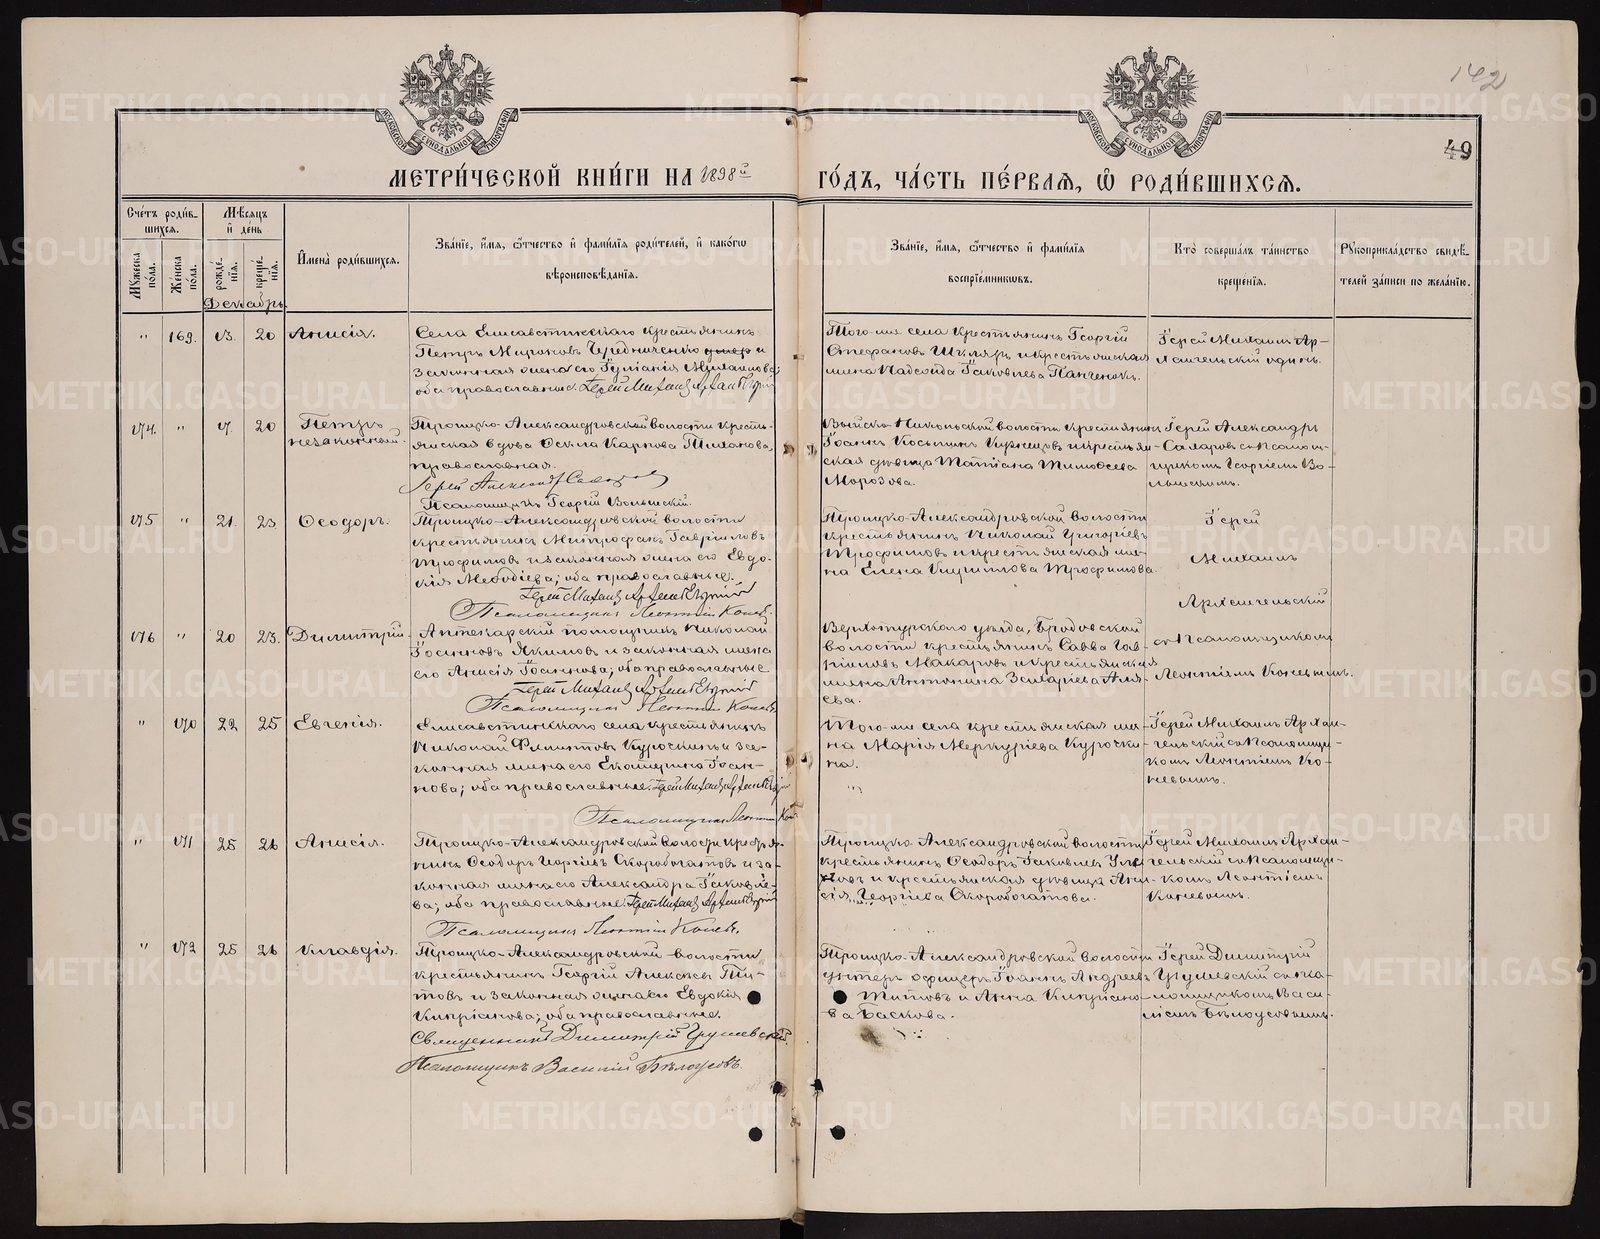 142
49
МЕТРИ́ЧЕСКОЙ КНИ́ГИ НА 1898й
ГО́ДЪ, ЧА́СТЬ ПЕ́РВАЯ, Ѡ РОДИ́ВШИХСЯ.
Сче́тъ роди́в-
шихся.
Мꙋ́жеска по́ла.
Же́нска по́ла.
Мѣ́сяцъ и де́нь
рожде́-нїя.
креще́-нїя.
Имена̀ роди́вшихся.
Зва́нїе, и́мя, ѻ҆́тчество и фами́лїя роди́телей, и како́гѡ
вѣроисповѣ́данїя.
Зва́нїе, и́мя, ѻ҆́тчество и фами́лїя
воспрїе́мниковъ.
Кто̀ соверша́лъ та́инство
креще́нїя.
Рꙋкоприкла́дство свидѣ́-
телей за́писи по жела́нїю.
Декабрь
" 169. 13. 20 Анисія.
Села Елисаветинскаго крестьянинъ
Петръ Мироновъ Чередниченко умер и
законная жена его Іуліанія Михаилова;
оба православные. Іерей Михаилъ Архангельскій
Того-же села крестьянинъ Георгій
Стефановъ Шкляръ и крестьянская
жена Надежда Іаковлева Панченокъ.
Іерей Михаилъ Ар-
хангельскій одинъ.
174. " 17. 20 Петръ
незаконный.
Троицко-Александровской волости кресть-
янская вдова Ѳекла Карпова Тиханова,
православная.
Іерей Александръ
Псаломщикъ Георгій Волынскій.
Іоаннъ Косьминъ и крестьян-
ская дѣвица Татіана Тимоѳеева
Морозова.
Іерей Александръ
съ псалом-
щикомъ Георгіемъ Во-
лынскимъ.
175 " 21. 23. Ѳеодоръ.
Троицко-Александровской волости
крестьянинъ Митрофанъ Гавриловъ
Трофимовъ и законная жена его Евдо-
кія Меѳодіева; оба православные.
Іерей Михаилъ Архангельскій
Псаломщикъ Леонтій Коневъ.
Троицко-Александровской волости
крестьянинъ Николай Григоріевъ
Трофимовъ и крестьянская же-
на Елена Кириллова Трофимова.
Іерей
Михаилъ
Архангельскій
176 " 20 23. Димитрій.
Аптекарскій помощникъ Николай
Іоанновъ Якимовъ и законная жена
его Анисія Іоаннова; оба православные
Іерей Михаилъ Архангельскій
Псаломщикъ Леонтій Коневъ
Верхотурскаго уѣзда, Бродовской
волости крестьянинъ Савва Гав-
риловъ Макаровъ и крестьянская
жена Антонина Захаріева
съ псаломщикомъ
Леонтіемъ Коневымъ.
" 170 22 25 Евгенія.
Елисаветинскаго села крестьянинъ
Николай Филиповъ Курочкинъ и за-
конная жена его Екатерина Іоан-
нова; оба православные. Іерей Михаилъ Архангельскій
Псаломщикъ Леонтій Кон.
Того-же села крестьянская же-
на Марія Меркуріева Курочки-
на.
Іерей Михаилъ Архан-
гельскій съ псаломщи-
комъ Леонтіемъ Ко-
невымъ.
" 171 25 26 Анисія.
Троицко-Александровской волости крестья-
нинъ Ѳеодоръ Георгіевъ Скоробогатовъ и за-
конная жена его Александра Іаковле-
ва; оба православные. Іерей Михаилъ Архангельскій
Псаломщикъ Леонтій Коневъ.
Троицко-Александровской волости
крестьянинъ Ѳеодоръ Іаковлевъ
и крестьянская дѣвица Ани-
сія Георгіева Скоробогатова.
Іерей Михаилъ Архан-
гельскій съ псаломщи-
комъ Леонтіемъ
Коневымъ.
" 172 25 26 Клавдія.
Троицко-Александровской волости
крестьянинъ Георгій Алексѣевъ Ти-
товъ и законная жена его Евдокія
Кипріанова; оба православные.
Священникъ Димитрій Грушевскій.
Псаломщикъ Василій Бѣлоусовъ.
Троицко-Александровской волости
унтеръ офицеръ Іоаннъ Андреевъ
Титовъ и Анна Кипріано-
ва Баскова.
Іерей Димитрій
Грушевскій съ пса-
ломщикомъ Васи-
ліемъ Бѣлоусовымъ.
METRIKI.GASO-URAL.RU